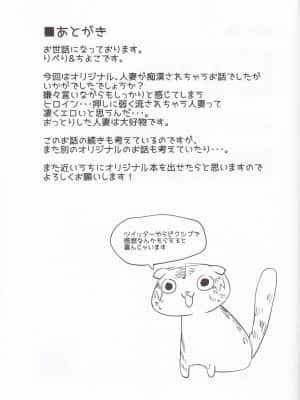 ■あとがき
お世話になっております。
りぺり&ちよこです。
今回はオリジナル、人妻が痴漢されちゃうお話でしたが
いかがでしたでしょうか？
嫌々言いながらもしっかりと感じてしまう
ヒロイン・・・押しに弱く流されちゃう人妻って
凄くエロいと思うんだ・・・。
おっとりした人妻は大好物です。
このお話の続きも考えているのですが、
また別のオリジナルのお話も考えていたり・・・。
また近いうちにオリジナル本を出せたらと思いますので
よろしくお願いします！
ツイッターやらピクシブで
感想なんかもらえると
喜んじゃいます